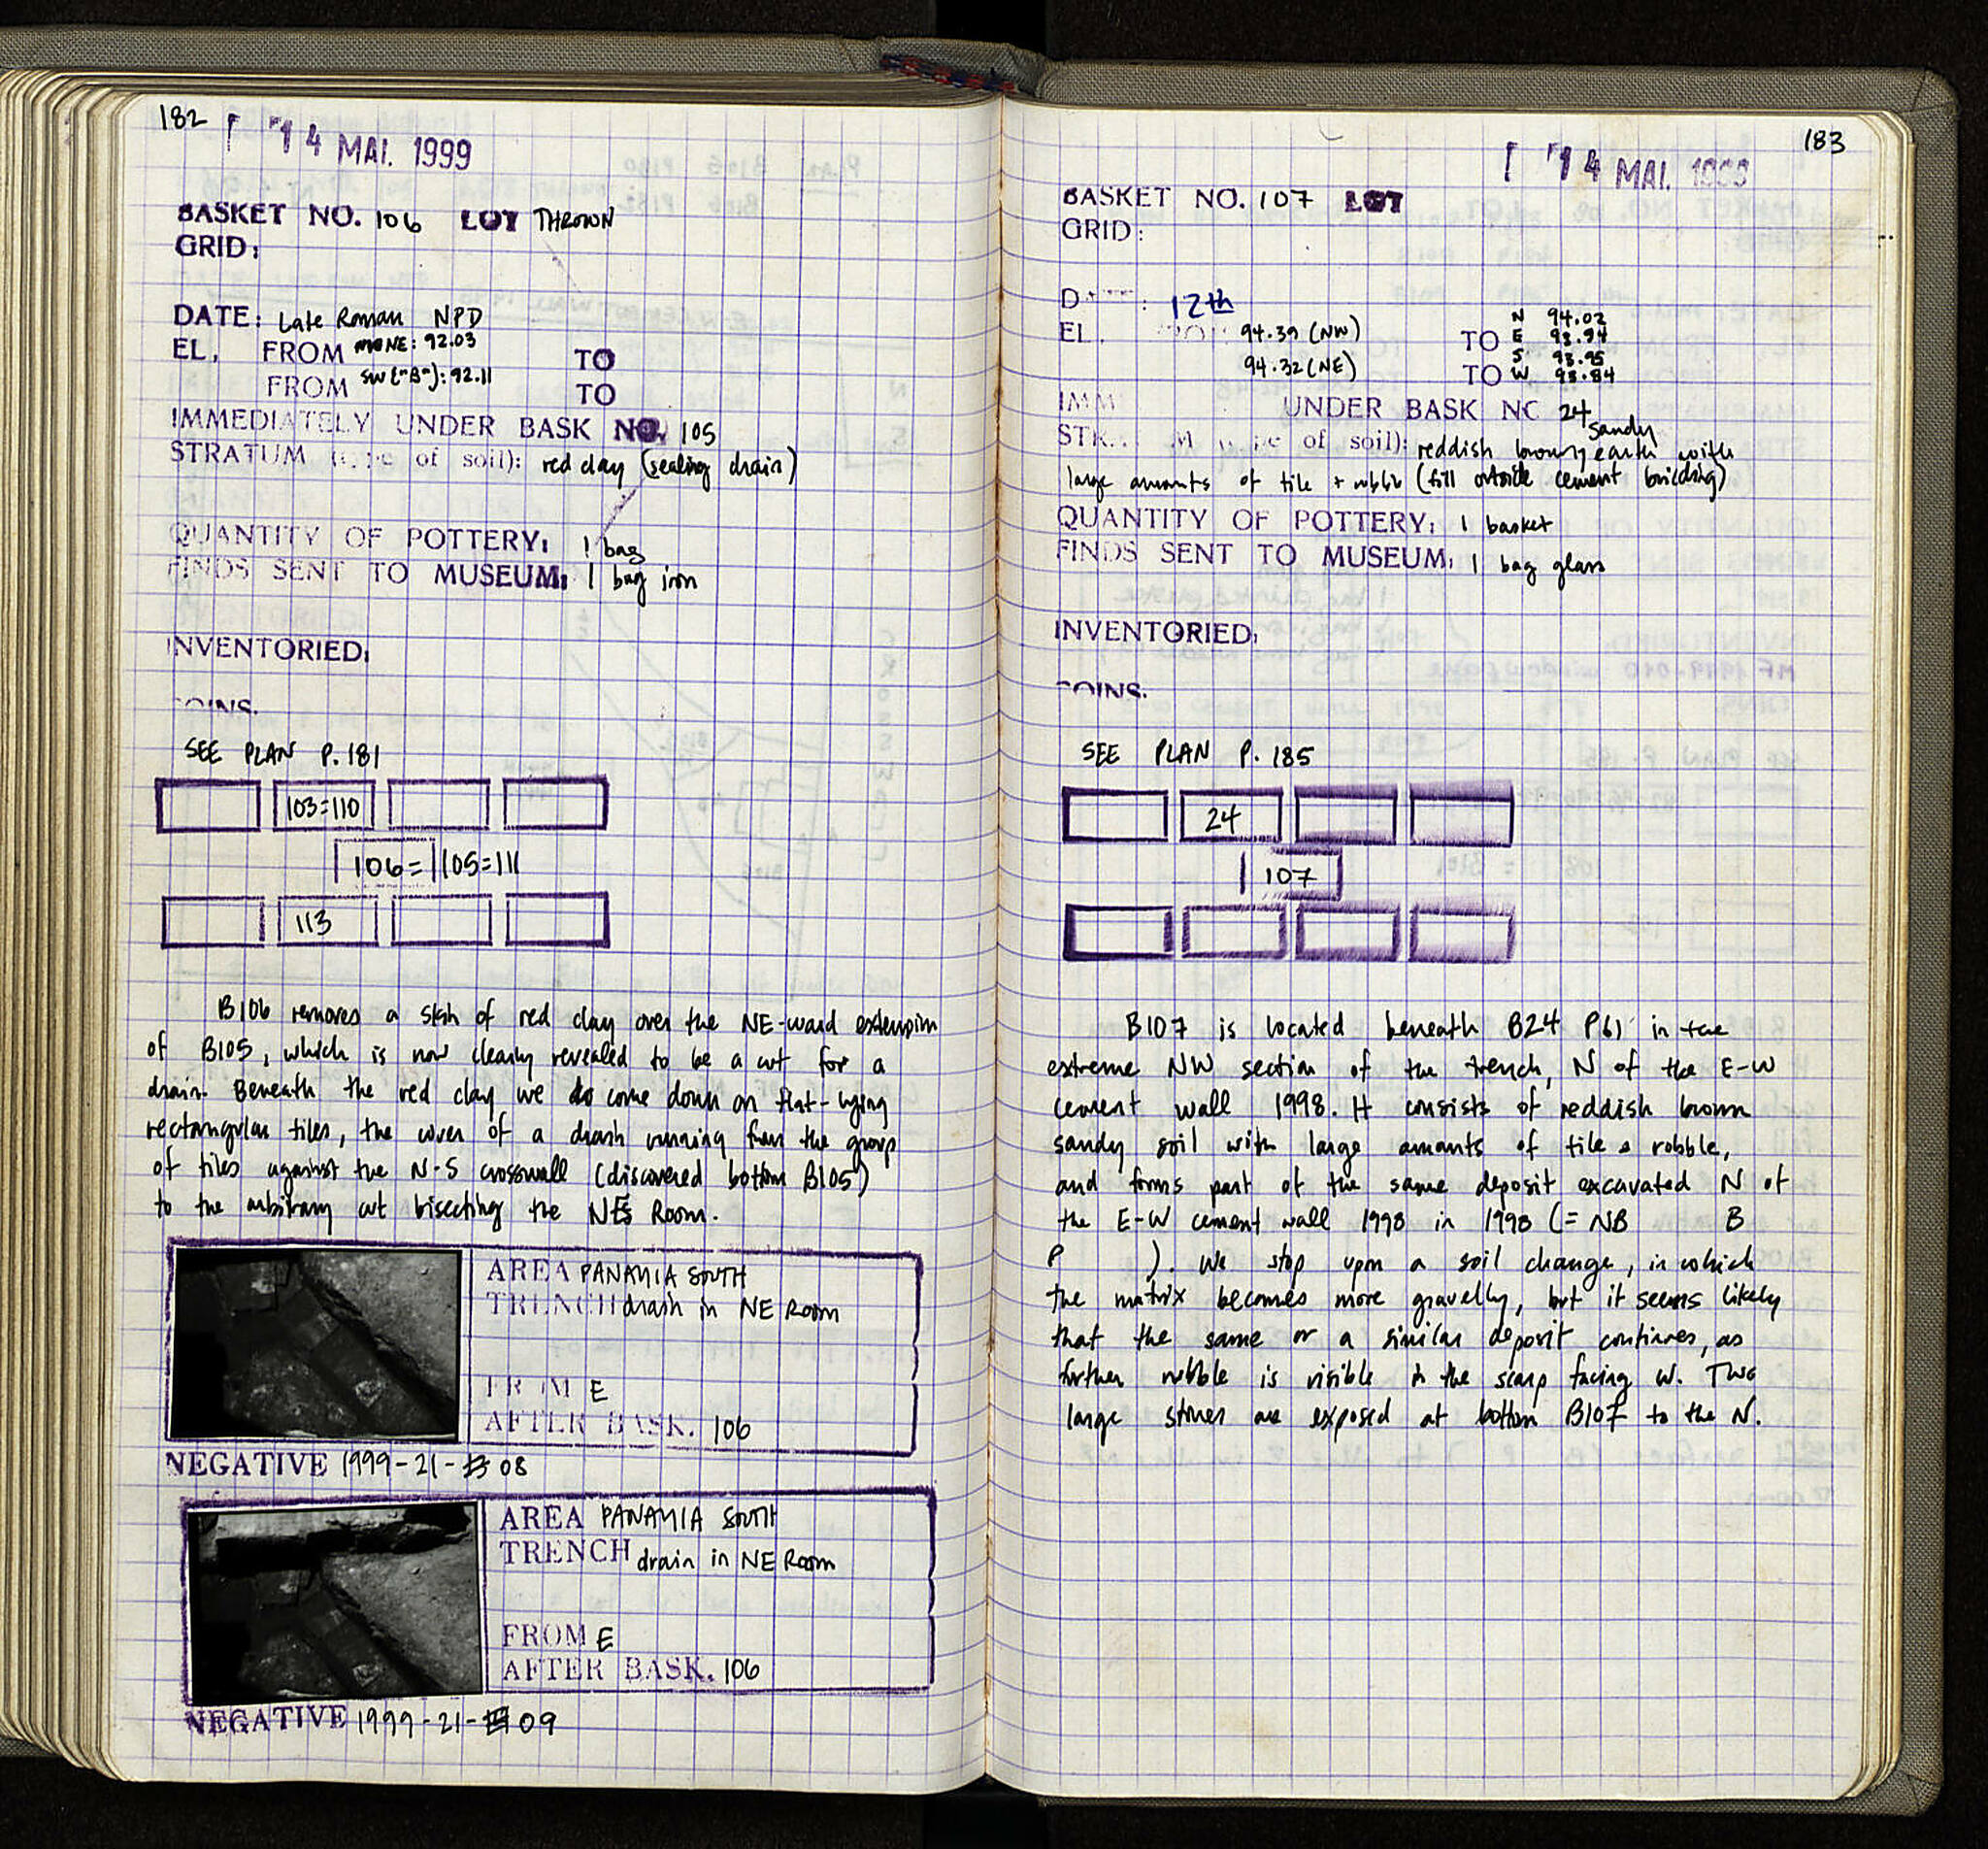 182
14 MAI. 1999
BASKET NO. 106 LOT THROWN
GRID:
DATE: Late Roman NPD
EL, FROM NE: 92.03 TO
FROM SW ("B"): 92.11 TO
IMMEDIATELY UNDER BASK NO. 105
STRATUM (type of soil): red clay (sealing drain)
QUANTITY OF POTTERY: 1 bag
FINDS SENT TO MUSEUM: 1 bag iron
INVENTORIED:
COINS:
SEE PLAN P. 181
103=110
106= 105=111
113
B106 removes a skin of red clay over the NE-ward extension
of B105, which is now clearly revealed to be a cut for a
drain. Beneath the red clay we do come down on flat-lying
rectangular tiles, the cover of a drain running from the group
of tiles against the N-S crosswall (discovered bottom B105)
to the arbitrary cut bisecting the NE Room.
AREA PANAYIA SOUTH
TRENCH drain in NE Room
FROM E
AFTER BASK. 106
NEGATIVE 1999-21-08
AREA PANAYIA SOUTH
TRENCH drain in NE Room
FROM E
AFTER BASK. 106
NEGATIVE 1999-21-09
183
14 MAI. 1999
BASKET NO. 107 LOT
GRID:
D : 12th
EL. 94.39 (NW) TO N 94.02
E 93.94
94.32 (NE) S 93.95
TO W 93.84
IMM UNDER BASK NO 24
STR M of soil): reddish brown sandy earth with
large amounts of tile + rubble (fill outside cement building)
QUANTITY OF POTTERY: 1 basket
FINDS SENT TO MUSEUM: 1 bag glass
INVENTORIED:
COINS:
SEE PLAN P. 185
24
107
B107 is located beneath B24 P61 in the
extreme NW section of the trench, N of the E-W
cement wall 1998. It consists of reddish brown
sandy soil with large amounts of tile & rubble,
and forms part of the same deposit excavated N of
the E-W cement wall 1998 in 1998 (= NB B
P ). We stop upon a soil change, in which
the matrix becomes more gravelly, but it seems likely
that the same or a similar deposit continues, as
further rubble is visible in the scarp facing W. Two
large stones are exposed at bottom B107 to the N.